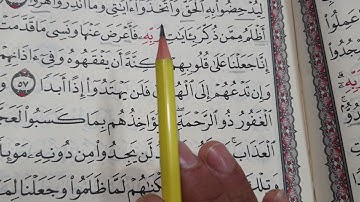 لِيُدْحِضُوا۟ بِهِ ٱلْحَقَّ وَٱتَّخَذُوٓا۟ ءَايَـٰتِى وَمَآ أُنذِرُوا۟ هُزُوًا
أَظْلَمُ مِمَّن ذُكِّرَ بِـَٔايَـٰتِ فَأَعْرَضَ عَنْهَا وَنَسِىَ مَا قَدَّمَتْ
إِنَّا جَعَلْنَا عَلَىٰ قُلُوبِهِمْ أَكِنَّةً أَن يَفْقَهُوهُ وَفِىٓ ءَاذَانِهِمْ
وَإِن تَدْعُهُمْ إِلَى ٱلْهُدَىٰ فَلَن يَهْتَدُوٓا۟ إِذًا أَبَدًا ٥٧
ٱلْغَفُورُ ذُو ٱلرَّحْمَةِ يُؤَاخِذُهُم بِمَا كَسَبُوا۟
ٱلْعَذَابَ لَّن يَجِدُوا۟ مِن دُونِهِۦ
لَمَّا ظَلَمُوا۟ وَجَعَلْنَا